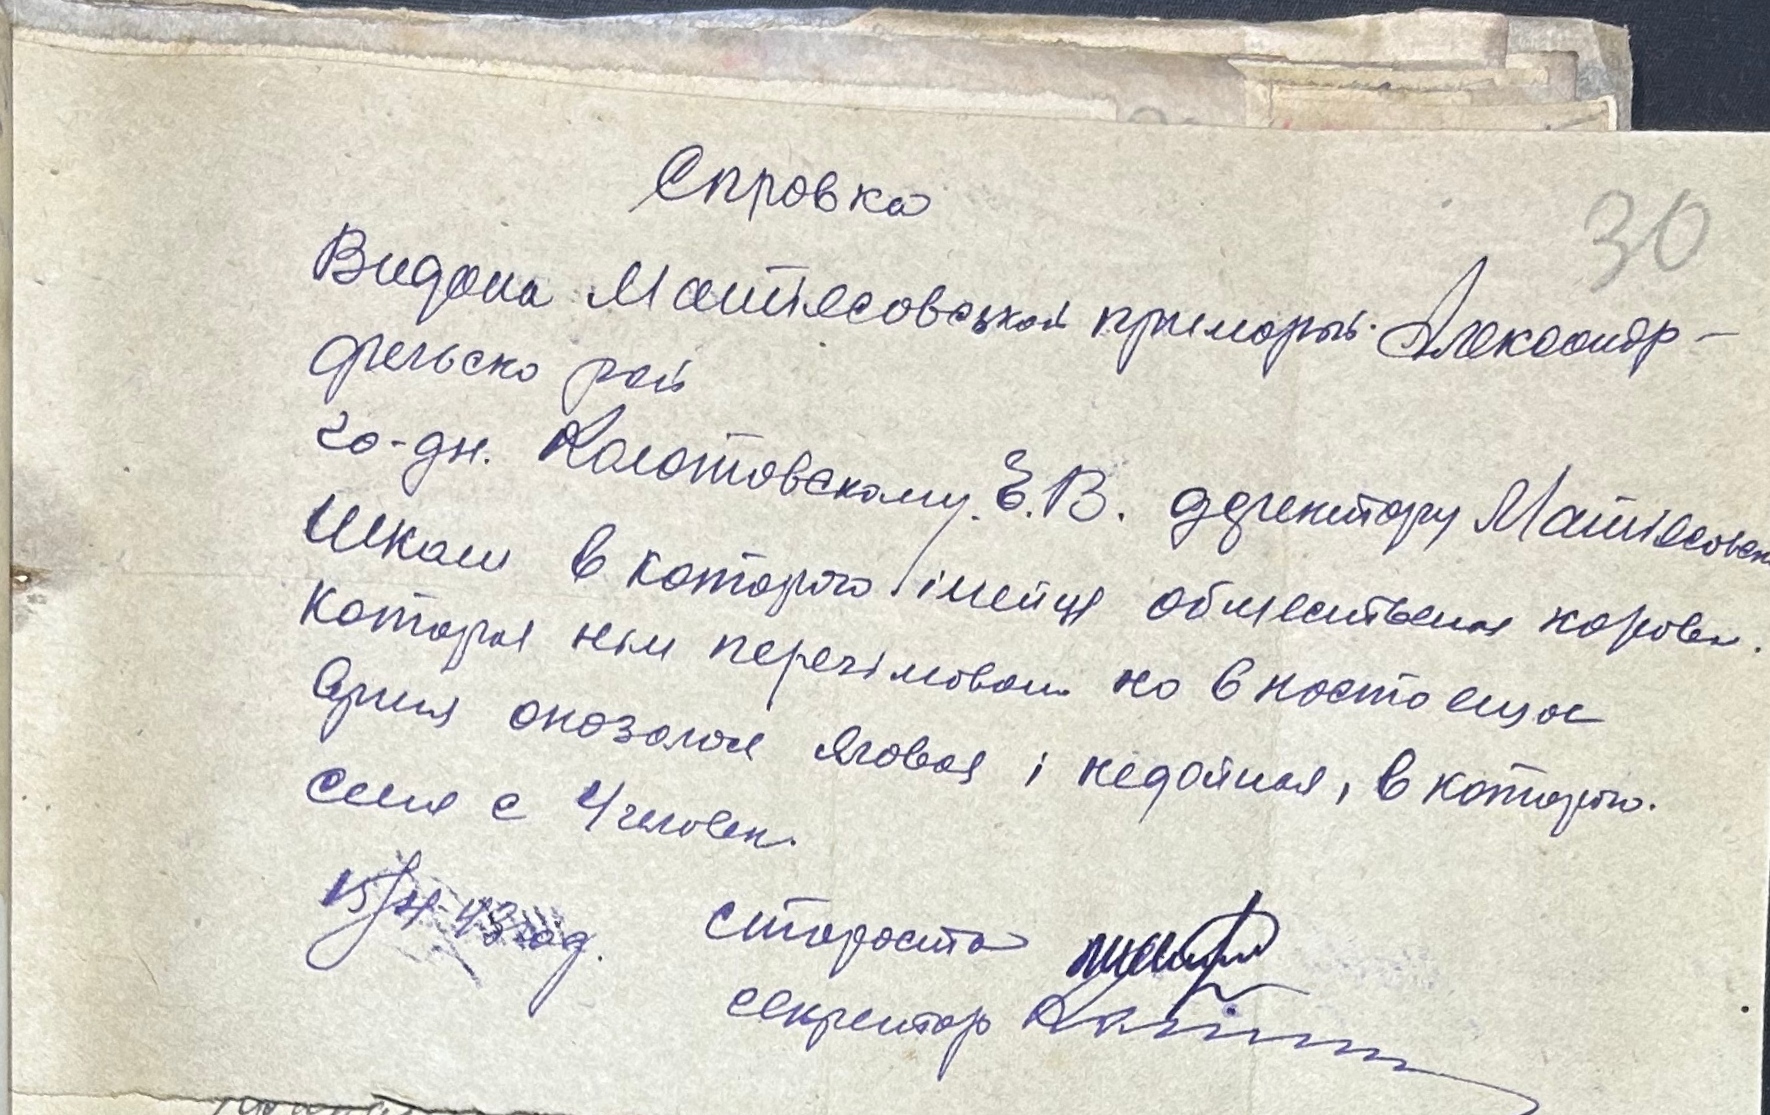 Справка
30
Видана Матіясовской примарій Александр-
фельско рай
го-дн. Колотовскому. Е.В. дериктору Матіясовск
Школи в которого імейця обшественая корова.
Которая нім перезімована но в настоящое
время оказалоя яловая і недойная, в которго.
семя с 4 человек.
43 год. староста
секретар